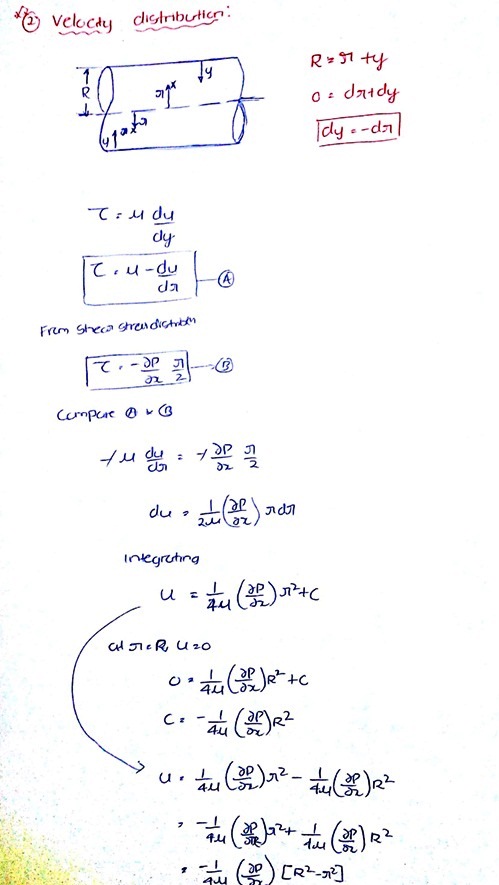 ** ② Velocity distribution:
R = r + y
0 = dr + dy
dy = -dr
R
r
x
y
r
y
x
τ = μ du/dy
τ = μ -du/dr — Ⓐ
From Shear stress distribtn
τ = -∂P/∂x r/2 — Ⓑ
Compare Ⓐ & Ⓑ
-/ μ du/dr = -/ ∂P/∂x r/2
du = 1/2μ (∂P/∂x) r dr
Integrating
u = 1/4μ (∂P/∂x) r² + C
at r = R, u = 0
0 = 1/4μ (∂P/∂x) R² + C
C = -1/4μ (∂P/∂x) R²
u = 1/4μ (∂P/∂x) r² - 1/4μ (∂P/∂x) R²
= -1/4μ (∂P/∂x) r² + 1/4μ (∂P/∂x) R²
= -1/4μ (∂P/∂x) [R² - r²]